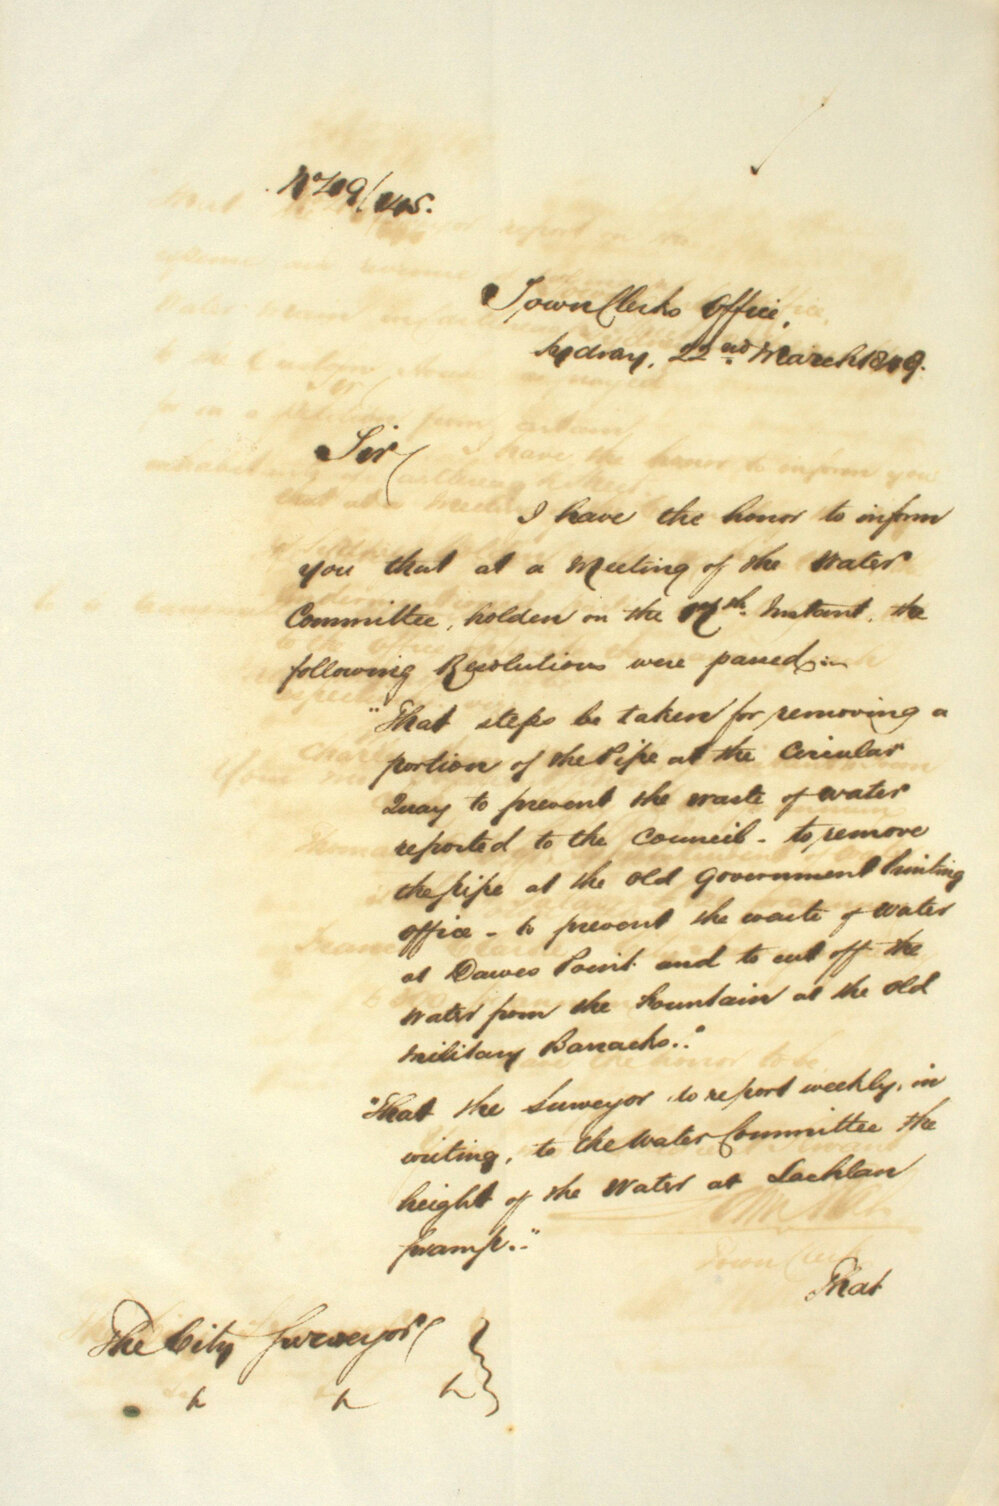 No 49/145.
Town Clerks Office,
Sydney, 22nd March 1849.
Sir
I have the honor to inform
you that at a Meeting of the Water
Committee, holden on the Instant, the
following Resolutions were passed
"That steps be taken for removing a
portion of the Pipe at the Circular
Quay to prevent the waste of water
reported to the Council - to remove
the pipe at the old Government Printing
office - to prevent the waste of water
at Dawes Point and to cut off the
Water from the Fountain at the old
Military Barracks.."
"That the Surveyor to report weekly, in
writing, to the Water Committee the
height of the Water at Lachlan
Swamp.."
That
The City Surveyor